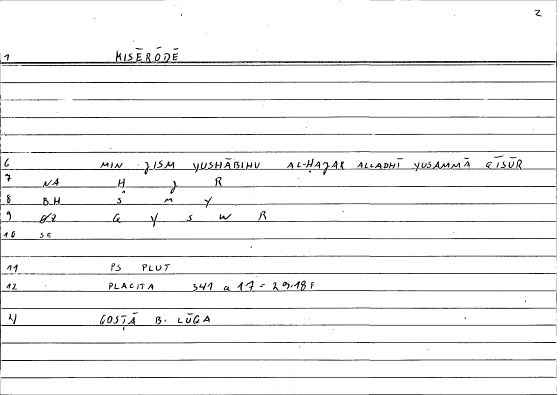 2
1 MISĒRŌDĒ
6 MIN JISM YUSHĀBIHU AL-ḤAJAR ALLADHĪ YUSAMMĀ
7 NA Ḥ J R
8 B.H S M Y
9 Q Y S W R
10 SE
11 PS PLUT
12 PLACITA 341 a 17 - 29.18 F
QOSṬĀ B. LŪQA